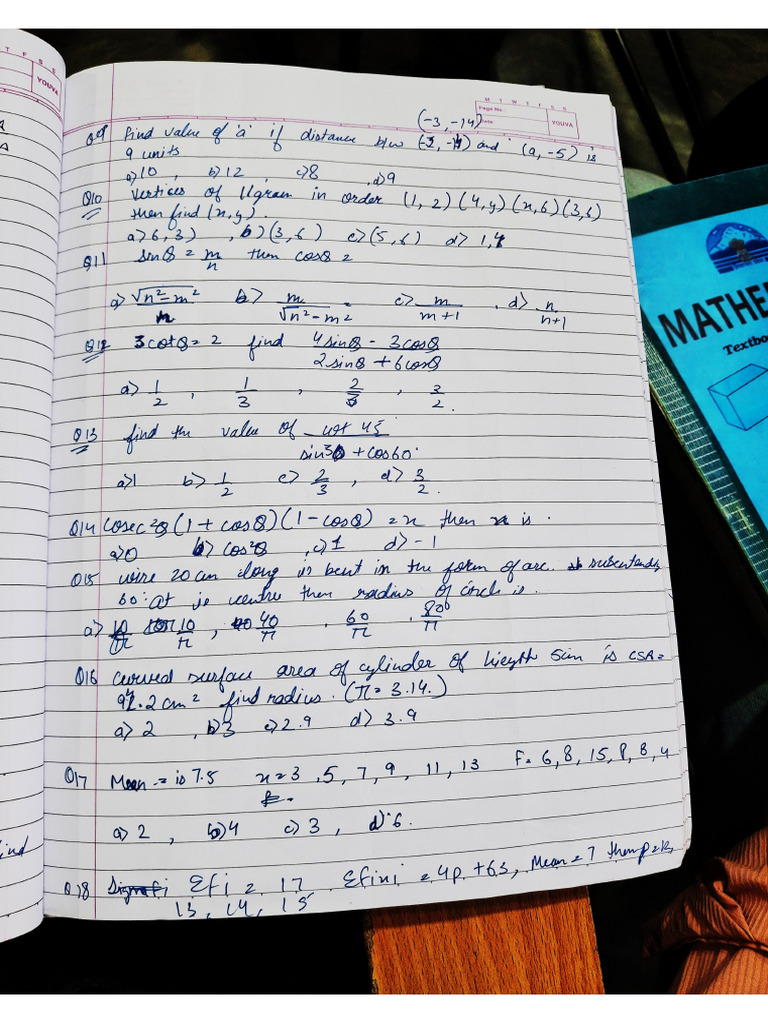 T F S S
YOUVA
M T W T F S S
Page No.:
Date:
YOUVA
(-3, -14)
Q9 find value of 'a' if distance b/w and (a, -5) is
9 units
a) 10 , b) 12 , c) 8 , d) 9
Q10 vertices of llgram in order (1, 2) (4, y) (x, 6) (3, 5)
then find (x, y)
a> 6, 3) , b> (3, 6) c> (5, 6) d> 1, 4
Q11 sinθ = m/n then cosθ =
a) √n²-m²/m b> m/√n²-m² c> m/m+1 , d> n/n+1
Q12 3cotθ = 2 find 4sinθ - 3cosθ/2sinθ + 6cosθ
a) 1/2 , 1/3 , 2/3 , 3/2.
Q13 find the value of cot 45/sin30 + cos60
a) 1 b> 1/2 c> 2/3 , d> 3/2.
Q14 Cosec²θ (1 + cosθ) (1 - cosθ) = x then x is.
a> 0 b> cos²θ , c) 1 d> -1
Q15 wire 20 cm long is bent in the form of arc subcentends
60° at centre then radius of circle is.
a> 10/π , 40/π , 60/π , 80/π
Q16 curved surface area of cylinder of hieght 5cm is CSA =
94.2 cm² find radius. (π = 3.14.)
a> 2 , b) 3 c) 2.9 d> 3.9
Q17 Mean = is 7.5 x = 3, 5, 7, 9, 11, 13 F = 6, 8, 15, P, 8, 4
a> 2 , b) 4 c) 3 , d) 6.
Q18 Σfi = 17 Σfixi = 4p + 63, Mean = 7 then p =
13, 14, 15
MATHE
Textbo
ind